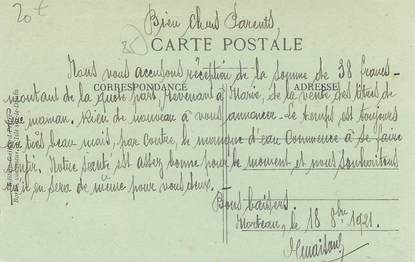 20€
85
Bien chers Parents,
CARTE POSTALE
Nous vous accusons réception de la somme de 38 francs
montant de la quote part, revenant à Marie, de la vente des titres de
CORRESPONDANCE
ADRESSE
maman. Rien de nouveau à vous annoncer. Le temps est toujours
au très beau mais, par contre, le manque d'eau commence à se faire
sentir. Notre santé est assez bonne pour le moment et nous souhaitons
qu'il en sera de même pour vous deux.
Bons baisers.
Morteau, le 18 8bre 1921.